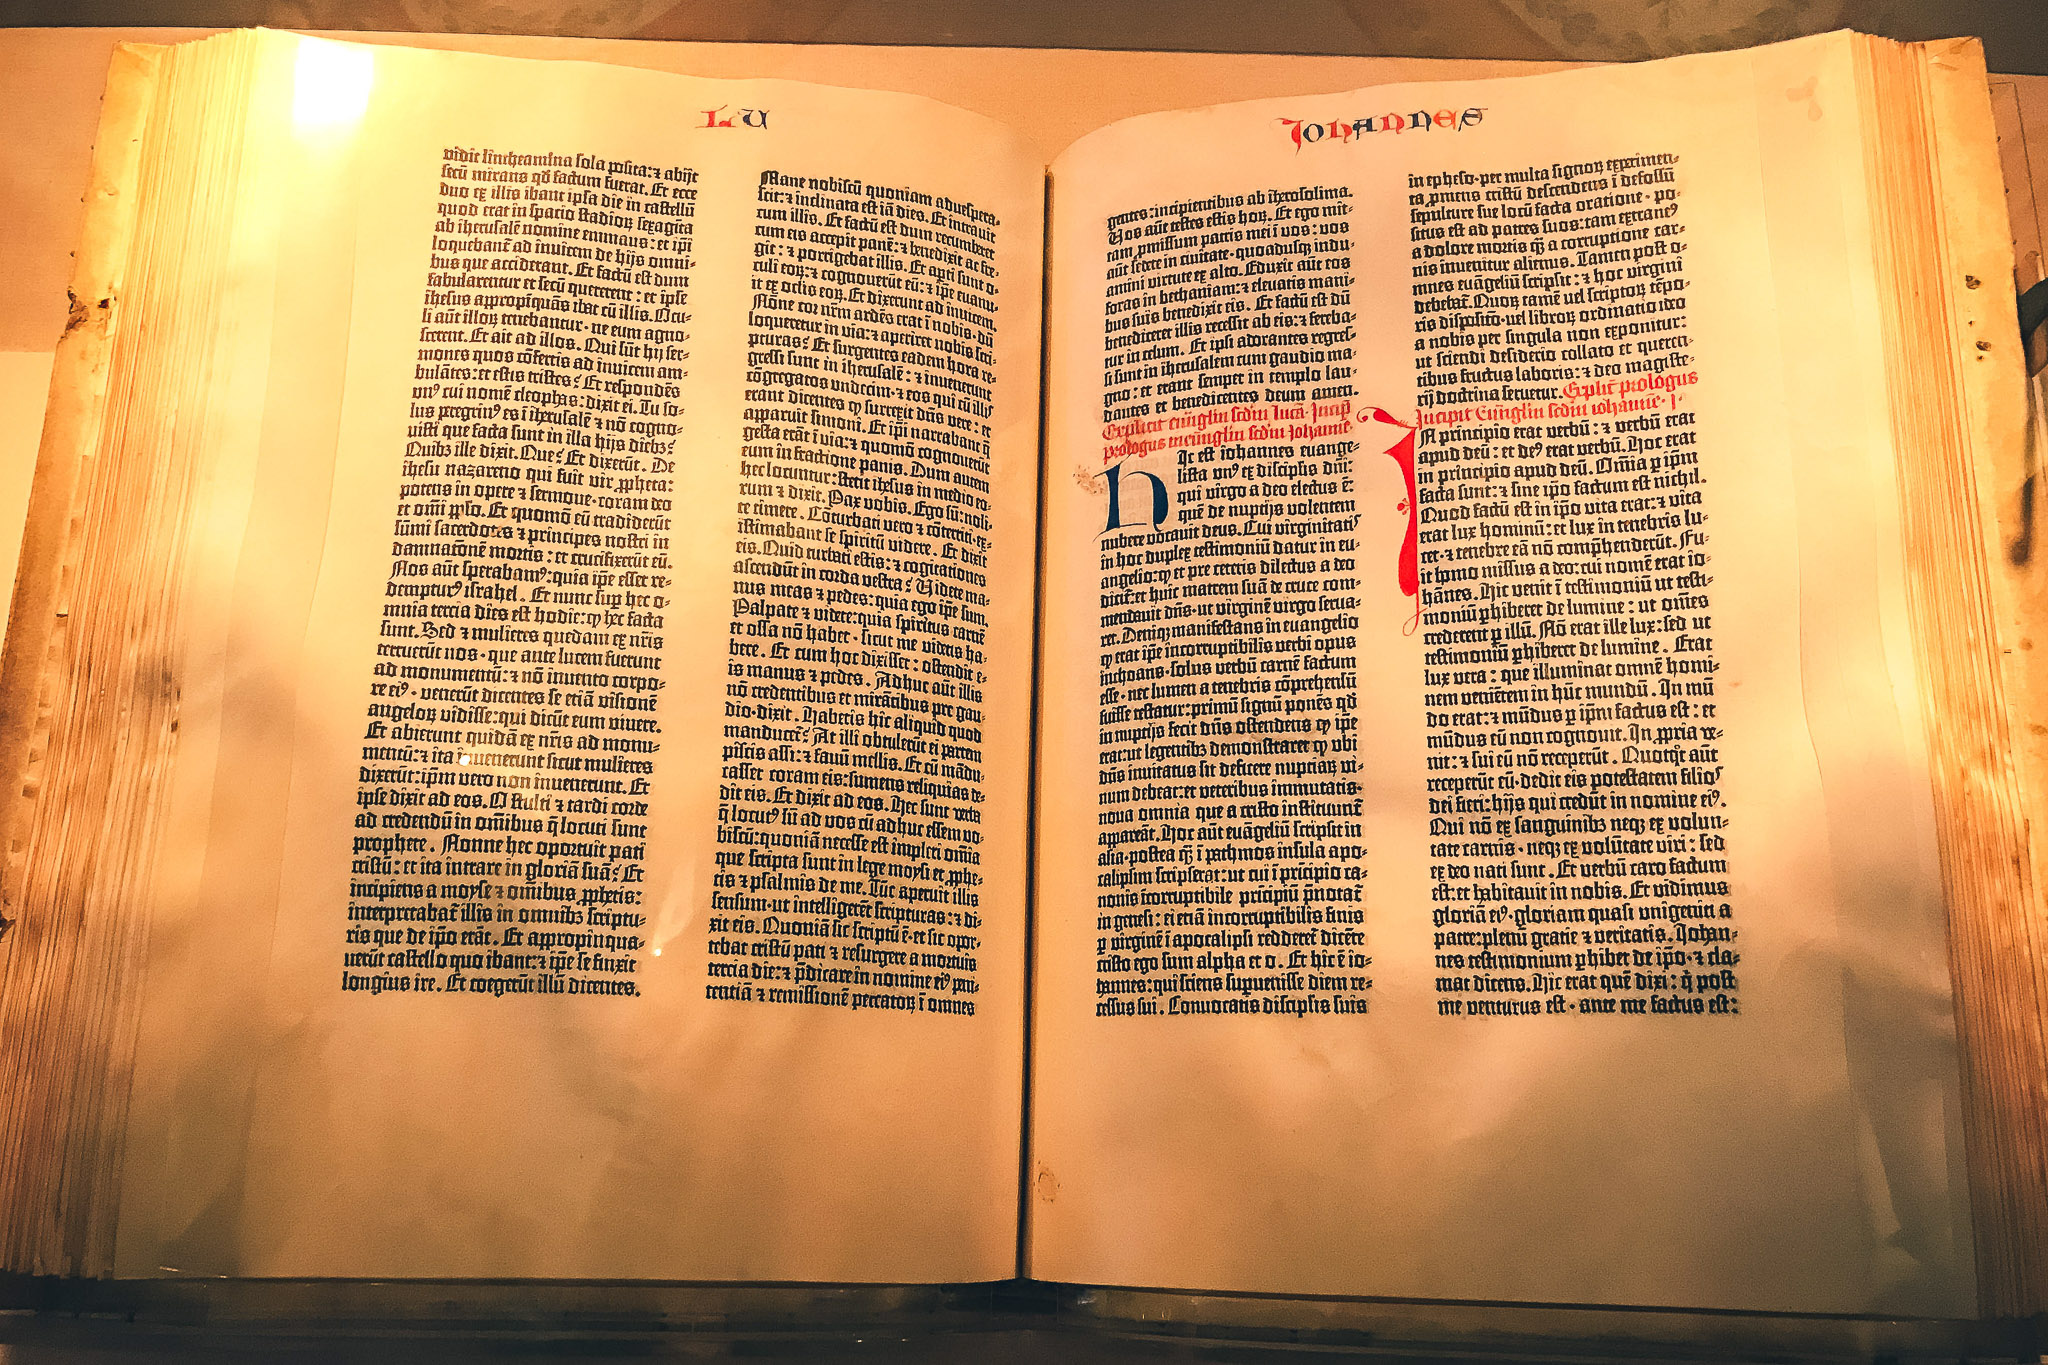 LU
vidit lintheamina sola posita: ⁊ abijt
secū mirans qd̄ factum fuerat. Et ecce
duo ex illis ibant ipsa die in castellū
quod erat in spacio stadioꝝ sexagīta
ab iherusalē nomine emmaus: et ip̄i
loquebant̄ ad invicem de hijs omni-
bus que acciderant. Et factū est dum
fabularentur et secū quererent: et ipse
ihesus appropīquās ibat cū illis. Ocu-
li aūt illoꝝ tenebantur · ne eum agno-
scerent. Et ait ad illos. Qui sūt hij ser-
mones quos cōfertis ad invicem am-
bulātes: et estis tristes? Et respondēs
unꝰ cui nomē cleophas: dixit ei. Tu so-
lus peregrinꝰ es ī iherusalē ⁊ nō cogno-
visti que facta sunt in illa hijs diebꝫ?
Quibꝫ ille dixit. Que? Et dixerūt. De
ihesu nazareno qui fuit vir ꝓpheta:
potens in opere ⁊ sermone · coram deo
et om̄i pp̄lo. Et quomō eū tradiderūt
sūmi sacerdotes ⁊ principes nostri in
damnatōnē mortis: et crucifixerūt eū.
Nos aūt sperabamꝰ: quia ip̄e esset re-
demptuꝰ israhel. Et nunc suꝑ hec o-
mnia tercia dies est hodie: ꝙ hec facta
sunt. Sed ⁊ mulieres quedam ex nr̄is
terruerūt nos · que ante lucem fuerunt
ad monumentū: ⁊ nō invento corpo-
re eiꝰ · venerūt dicentes se etiā visionē
angeloꝝ vidisse: qui dicūt eum vivere.
Et abierunt quidā ex nr̄is ad monu-
mentū: ⁊ ita invenerunt sicut mulieres
dixerūt: ip̄m vero non invenerunt. Et
ipse dixit ad eos. O stulti ⁊ tardi corde
ad credendū in om̄ibus q̄ locuti sunt
prophete. Nonne hec oportuit pati
cristū: et ita intrare in gloriā suā? Et
incipiens a moyse ⁊ om̄ibus ꝓphetis:
interpretabat̄ illis in omnibꝫ scriptu-
ris que de ip̄o erāt. Et appropinqua-
verūt castello quo ibant: ⁊ ip̄e se finxit
longius ire. Et coegerūt illū dicentes.
Mane nobiscū quoniam advespera-
scit: ⁊ inclinata est iā dies. Et intravit
cum illis. Et factū est dum recumberet
cum eis accepit panē: ⁊ benedixit ac fre-
git: ⁊ porrigebat illis. Et aperti sunt o-
culi eoꝝ: ⁊ cognoverūt eū: ⁊ ip̄e evanu-
it ex oclis eoꝝ. Et dixerunt ad invicem.
Nōne cor nr̄m ardēs erat ī nobis · dū
loqueretur in via: ⁊ aperiret nobis scri-
pturas? Et surgentes eadem hora re-
gressi sunt in iherusalē: ⁊ invenerunt
cōgregatos undecim · ⁊ eos qui cū illis
erant dicentes ꝙ surrexit dn̄s vere: et
apparuit simoni. Et ip̄i narrabant q̄
gesta erāt ī via: ⁊ quomō cognoverūt
eum in fractione panis. Dum autem
hec locuntur: stetit ihesus in medio eo-
rum ⁊ dixit. Pax vobis. Ego sū: noli-
te timere. Cōturbati vero ⁊ cōterriti · ex-
istimabant se spiritū videre. Et dixit
eis. Quid turbati estis: ⁊ cogitationes
ascendūt in corda vestra? Videte ma-
nus meas ⁊ pedes: quia ego ip̄e sum.
Palpate ⁊ videte: quia spiritus carnē
et ossa nō habet · sicut me videtis ha-
bere. Et cum hoc dixisset: ostendit e-
is manus ⁊ pedes. Adhuc aūt illis
nō credentibus et mirātibus pre gau-
dio · dixit. Habetis hic aliquid quod
manducet̄? At illi obtulerūt ei partem
piscis assi: ⁊ favū mellis. Et cū mādu-
casset coram eis: sumens reliquias de-
dit eis. Et dixit ad eos. Hec sunt verba
q̄ locutꝰ sū ad vos cū adhuc essem vo-
biscū: quoniā necesse est impleri om̄ia
que scripta sunt in lege moysi et ꝓphe-
tis ⁊ psalmis de me. Tūc aperuit illis
sensum · ut intelligerēt scripturas: ⁊ di-
xit eis. Quoniā sic scriptū ē · et sic opor-
tebat cristū pati ⁊ resurgere a mortuis
tercia die: ⁊ p̄dicare in nomine eiꝰ peni-
tentiā ⁊ remissionē peccatoꝝ ī omnes
JOHANNES
gentes: incipientibus ab iherosolima.
Vos aūt testes estis hoꝝ. Et ego mit-
tam ꝓmissum patris mei ī vos: vos
aūt sedete in civitate · quoadusqꝫ indu-
amini virtute ex alto. Eduxit aūt eos
foras in bethaniam: ⁊ elevatis mani-
bus suis benedixit eis. Et factū est dū
benediceret illis recessit ab eis: ⁊ fereba-
tur in celum. Et ipsi adorantes regres-
si sunt in iherusalem cum gaudio ma-
gno: et erant semper in templo lau-
dantes et benedicentes deum amen.
Explicit ewāgliū scdm̄ lucā. Incip̄
prologus in ewāgliū scdm̄ Johannē.
Hic est iohannes evange-
lista unꝰ ex discipl̄is dn̄i:
qui virgo a deo electus ē:
quē de nuptijs volentem
nubere vocavit deus. Cui virginitatꝭ
in hoc duplex testimoniū datur in eu-
angelio: ꝙ et pre ceteris dilectus a deo
dicit̄: et huic matrem suā de cruce com-
mendavit dn̄s · ut virginē virgo serva-
ret. Deniqꝫ manifestans in evangelio
ꝙ erat ip̄e incorruptibilis verbi opus
inchoans · solus verbū carnē factum
esse · nec lumen a tenebris cōprehensū
fuisse testatur: primū signū ponēs qd̄
in nuptijs fecit dn̄s ostendens ꝙ ip̄e
erat: ut legentibꝫ demonstraret ꝙ ubi
dn̄s invitatus sit deficere nuptiaꝝ vi-
num debeat: et veteribus immutatis ·
nova omnia que a cristo instituunt̄
appareāt. Hoc aūt evāgeliū scripsit in
asia · postea qꝫ ī pathmos insula apo-
calipsim scripserat: ut cui ī p̄ricipio ca-
nonis īcorruptibile principiū p̄notat̄
in genesi: ei etiā incorruptibilis finis
ꝑ virginē ī apocalipsi redderet̄ dicēte
cristo ego sum alpha et o. Et hic ē io-
hannes: qui sciens supvenisse diem re-
cessus sui. Convocatis discipl̄is suis
in epheso · per multa signoꝝ experimen-
ta ꝓmens cristū descendens ī defossū
sepulture sue locū facta oratione · po-
situs est ad patres suos: tam extraneꝰ
a dolore mortis qꝫ a corruptione car-
nis invenitur alienus. Tamen post o-
mnes evāgeliū scripsit: ⁊ hoc virgini
debebat̄. Quoꝝ tamē vel scriptoꝝ tēpo-
ris dispositō · vel libroꝝ ordinatio ideo
a nobis per singula non exponitur:
ut sciendi desiderio collato et queren-
tibus fructus laboris: ⁊ deo magiste-
rij doctrina servetur. Explic̄ prologus
Incipit Ewāgliū scdm̄ iohannē. I.
In principio erat verbū: ⁊ verbū erat
apud deū: et deꝰ erat verbū. Hoc erat
in principio apud deū. Om̄ia ꝑ ip̄m
facta sunt: ⁊ sine ip̄o factum est nichil.
Quod factū est in ip̄o vita erat: ⁊ vita
erat lux hominū: et lux in tenebris lu-
cet · ⁊ tenebre eā nō comp̄henderūt. Fu-
it homo missus a deo: cui nomē erat io-
hānes. Hic venit ī testimoniū ut testi-
moniū ꝑhiberet de lumine: ut om̄es
crederent ꝑ illū. Nō erat ille lux: sed ut
testimoniū ꝑhiberet de lumine. Erat
lux vera: que illuminat omnē homi-
nem veniētem in hūc mundū. In mū-
do erat: ⁊ mūdus ꝑ ip̄m factus est: et
mūdus eū non cognovit. In ꝓpria ve-
nit: ⁊ sui eū nō receperūt. Quotqͦt aūt
receperūt eū · dedit eis potestatem filioꝭ
dei fieri: hijs qui credūt in nomine eiꝰ.
Qui nō ex sanguinibꝫ neqꝫ ex volun-
tate carnis · neqꝫ ex volūtate viri: sed
ex deo nati sunt. Et verbū caro factum
est: et habitavit in nobis. Et vidimus
gloriā eiꝰ · gloriam quasi unigeniti a
patre: plenū gratie ⁊ veritatis. Johan-
nes testimonium ꝑhibet de ip̄o · ⁊ cla-
mat dicens. Hic erat quē dixi: q̇ post
me venturus est · ante me factus est: